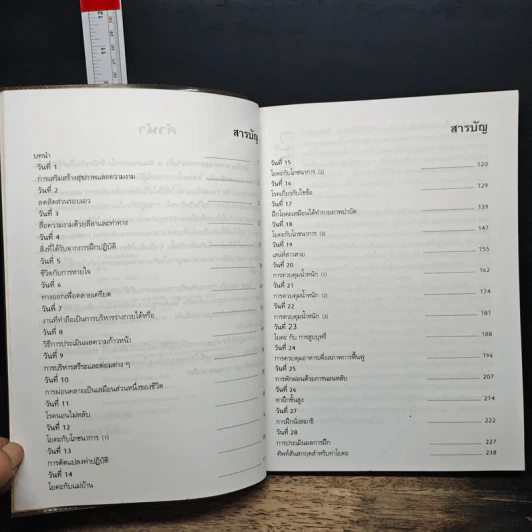 สารบัญ
บทนำ
วันที่ 1
การเสริมสร้างสุขภาพและความงาม
วันที่ 2
ลดสัดส่วนรอบเอว
วันที่ 3
สื่อความงามด้วยลีลาและท่าทาง
วันที่ 4
สิ่งที่ได้รับจากการฝึกปฏิบัติ
วันที่ 5
ชีวิตกับการหายใจ
วันที่ 6
ทางออกเพื่อคลายเครียด
วันที่ 7
งานที่ทำถือเป็นการบริหารร่างกายได้หรือ
วันที่ 8
วิธีการประเมินผลความก้าวหน้า
วันที่ 9
การบริหารสรีระและต่อมต่าง ๆ
วันที่ 10
การผ่อนคลายเป็นเสมือนส่วนหนึ่งของชีวิต
วันที่ 11
โรคนอนไม่หลับ
วันที่ 12
โยคะกับโภชนาการ (1)
วันที่ 13
การดัดแปลงท่าปฏิบัติ
วันที่ 14
โยคะกับแม่บ้าน
สารบัญ
วันที่ 15
โยคะกับโภชนาการ (2) 120
วันที่ 16
โรคเกี่ยวกับไขข้อ 129
วันที่ 17
ฝึกโยคะเหมือนได้ทำกายภาพบำบัด 139
วันที่ 18
โยคะกับโภชนาการ (3) 147
วันที่ 19
เสน่ห์สาวสวย 155
วันที่ 20
การควบคุมน้ำหนัก (1) 162
วันที่ 21
การควบคุมน้ำหนัก (2) 174
วันที่ 22
การควบคุมน้ำหนัก (3) 181
วันที่ 23
โยคะ กับ การสูบบุหรี่ 188
วันที่ 24
การควบคุมอาหารเพื่อสภาพการฟื้นฟู 196
วันที่ 25
การพักผ่อนด้วยการนอนหลับ 207
วันที่ 26
ท่าฝึกชั้นสูง 214
วันที่ 27
การฝึกนั่งสมาธิ 222
วันที่ 28
การประเมินผลการฝึก 227
ศัพท์สันสกฤตสำหรับท่าโยคะ 238